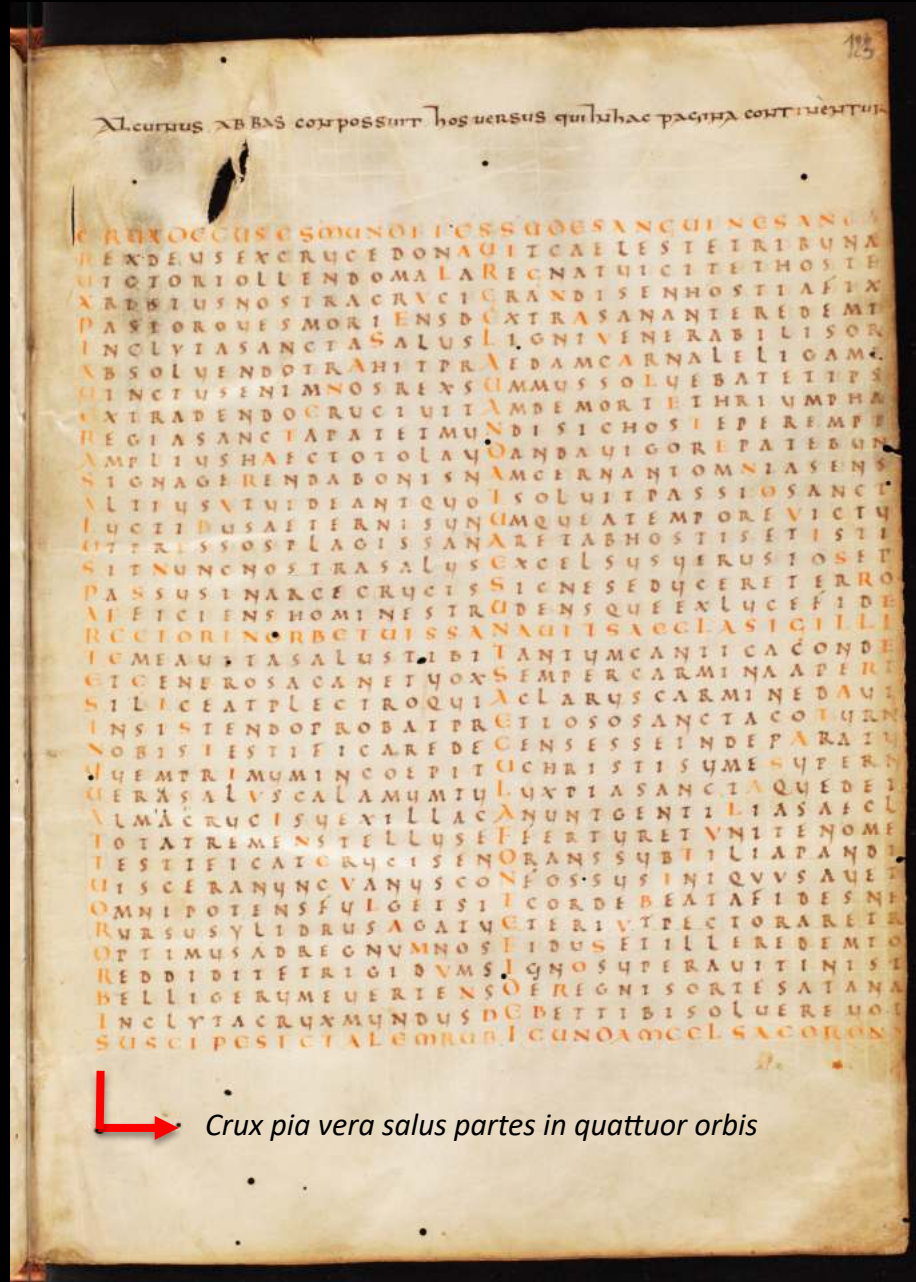 123
ALCUINUS ABBAS CONPOSSUIT hos UERSUS qui IN hac PAGINA CONTINENTUR
CRUXDECUSESMUNDIIESSUDESANGUINESANC
REXDEUSEXCRUCEDONAUITCAELESTETRIBUNA
UICTORTOLLENDOMALAREGNATUICITETHOSTE
XRISTUSNOSTRACRVCIGRANDISENHOSTIAFIX
PASTOROUESMORIENSDEXTRASANANTEREDEMT
INCLVTASANCTASALUSLIGNIVENERABILISOR
ABSOLUENDOTRAHITPRAEDAMCARNALELIGAM
UINCTUSENIMNOSREXSUMMUSSOLUEBATETIPS
EXTRADENDOCRUCIUITAMDEMORTETHRIUMPHA
REGIASANCTAPATETMUNDISICHOSTEPEREMPT
AMPLIUSHAECTOTOLAUDANDAUIGOREPATEBUN
SIGNAGERENDABONISNAMCERNANTOMNIASENS
ALTIUSVTUIDEANTQUOTSOLUITPASSIOSANCT
LUCTIBUSAETERNISUNUMQUEATEMPOREVICTU
UTTRESSOSPLAGISSANARETABHOSTISETISTI
SITNUNCNOSTRASALUSEXCELSUSUERUSIOSEP
PASSUSINARCECRUCISSIGNESEDUCERETERRO
AFFICIENSHOMINESTRUDENSQUEEXLUCEFIDE
RECTORINORBETUISSANAUITSAECLASIGILLI
TEMEAUITASALUSTIBITANTUMCANTICACONDE
ETGENEROSACANETUOXSEMPERCARMINAAPERT
SILICEATPLECTROQUIACLARUSCARMINEDAUI
INSISTENDOPROBATPRETIOSOSANCTACOTURN
NOBISTESTIFICAREDECENSESSEINDEPARATU
QUEMPRIMUMINCOEPITUCHRISTISUMESUPERN
UERASALVSCALAMUMTULUXPIASANCTAQUEDET
ALMACRUCISUEXILLACANUNTGENTILIASAECL
TOTATREMENSTELLUSEFFERTURETVNITENOME
TESTIFICATCRUCISENORANSSUBTILIAPANDI
UISCERANUNCVANUSCONFOSSUSINIQVVSAUET
OMNIPOTENSFULGETSITCORDEBEATAFIDESNE
RURSUSVLIDRUSAGATUETERIVTPECTORARETR
OPTIMUSADREGNVMNOSFIDUSETILLEREDEMTO
REDDIDITETRIGIDVMSIGNOSUPERAUITINIST
BELLIGERUMEUERTENSDEREGNISORTESATANA
INCLYTACRUXMUNDUSDEBETTIBISOLUEREUOT
SUSCIPESICTALEMRUBICUNDAMCELSACORON
Crux pia vera salus partes in quattuor orbis